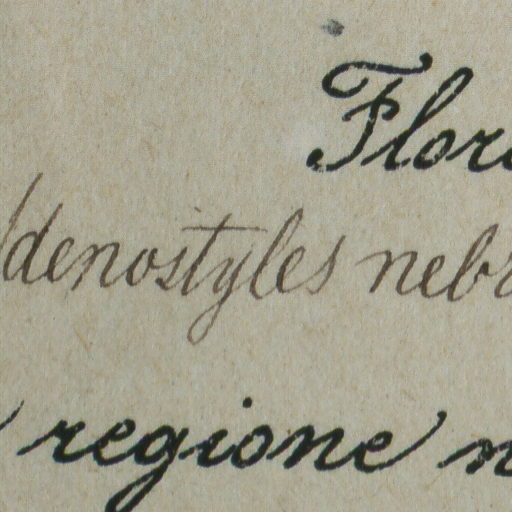 Flor
Adenostyles neb
regione n